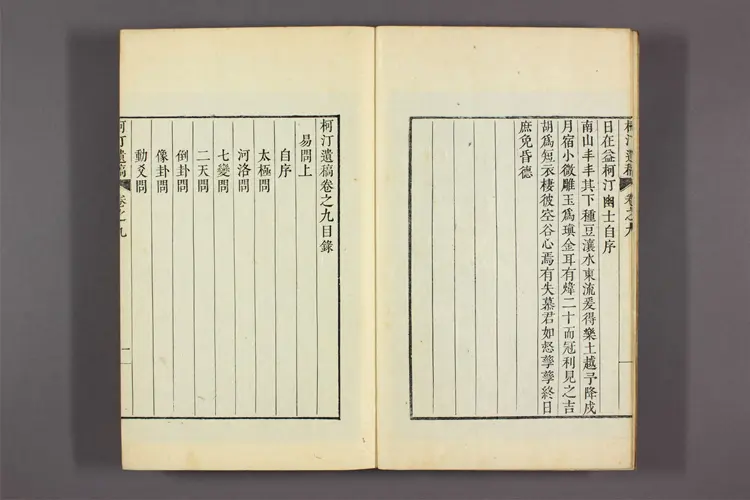 柯汀遺稿 卷之九
日在益柯汀幽士自序
南山丰丰其下種豆瀼水東流爰得樂土越予降戍
月宿小微雕玉爲瑱金耳有煒二十而冠利見之吉
胡爲短衣棲彼空谷心焉有失慕君如惄孳孳終日
庶免昏德
柯汀遺稿卷之九目錄
易問上
自序
太極問
河洛問
七變問
二天問
倒卦問
像卦問
動爻問
柯汀遺稿 卷之九 一